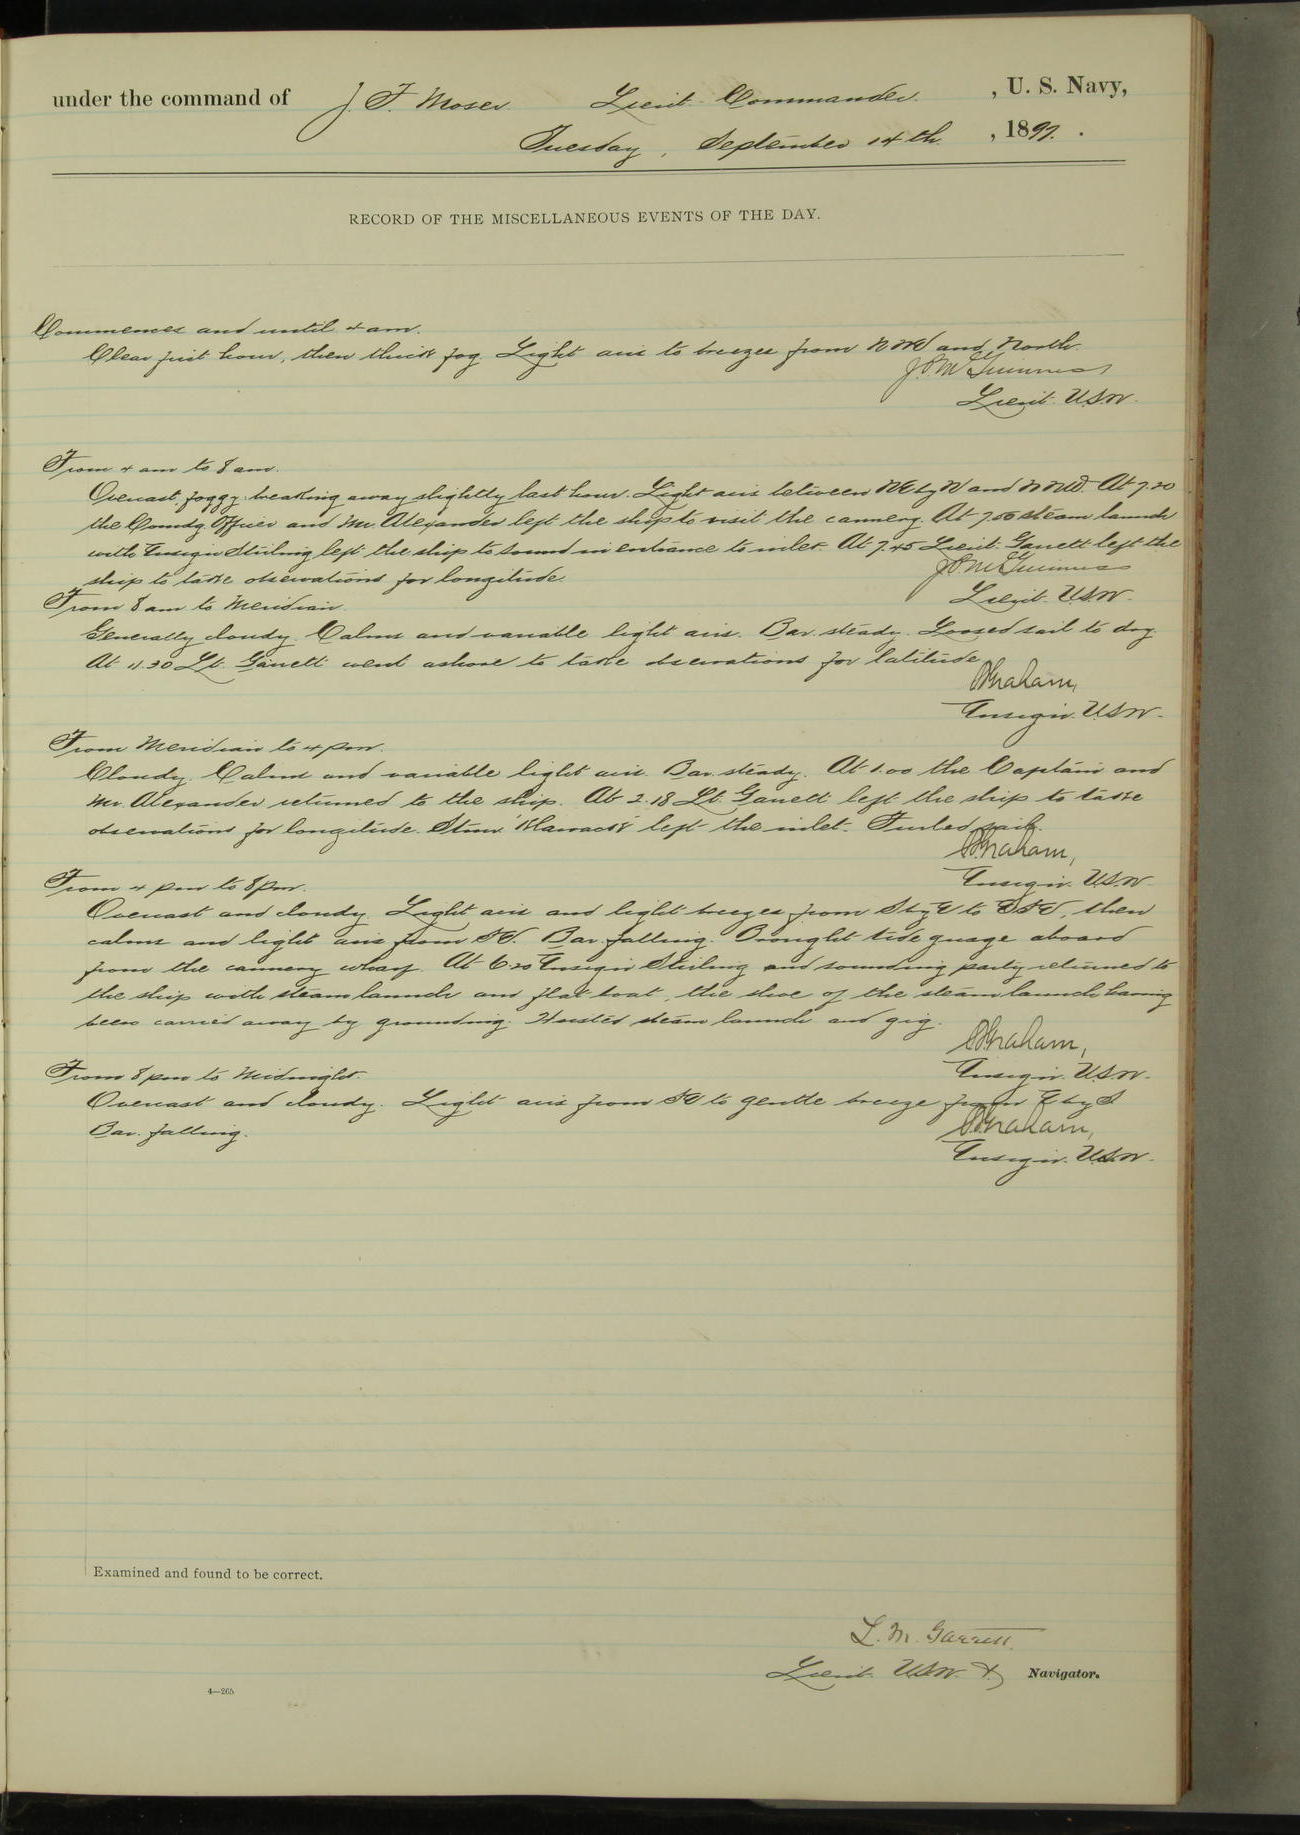 under the command of J. F. Moser Lieut. Commander , U. S. Navy,
Tuesday, September 14th , 1897.
RECORD OF THE MISCELLANEOUS EVENTS OF THE DAY.
Commences and until 4 am.
Clear first hour, then thick fog. Light airs to breezes from NNW and North.
J.P. McGuinness
Lieut. U.S.N.
From 4 am to 8 am.
Overcast, foggy, breaking away slightly last hour. Light airs between NE by N and NNW. At 7.20
the Comdg. Officer and Mr. Alexander left the ship to visit the cannery. At steam launch
with Ensign Stirling left the ship to sound in entrance to inlet. At 7.45 Lieut. Garrett left the
ship to take observations for longitude.
J.P. McGuinness
Lieut. U.S.N.
From 8 am to Meridian.
Generally cloudy. Calms and variable light airs. Bar. steady. Loosed sail to dry.
At 11.30 Lt. Garrett went ashore to take observations for latitude
Graham,
Ensign. U.S.N.
From Meridian to 4 pm.
Cloudy. Calms and variable light airs. Bar. steady. At 1.00 the Captain and
Mr. Alexander returned to the ship. At 2.18 Lt. Garrett left the ship to take
observations for longitude. Stmr. "Klawack" left the inlet. Furled sail.
Graham,
Ensign. U.S.N.
From 4 pm to 8 pm.
Overcast and cloudy. Light airs and light breezes from S by E to ESE, then
calms and light airs from SE. Bar. falling. Brought tide guage aboard
from the cannery wharf. At 6.20 Ensign Stirling and sounding party returned to
the ship with steam launch and flat boat, the shoe of the steam launch having
been carried away by grounding. Hoisted steam launch and gig.
Graham,
Ensign. U.S.N.
From 8 pm to Midnight.
Overcast and cloudy. Light airs from SE to gentle breeze from E by S
Bar. falling.
Graham,
Ensign. U.S.N.
Examined and found to be correct.
L. M. Garrett
Lieut. U.S.N. & Navigator.
4—265